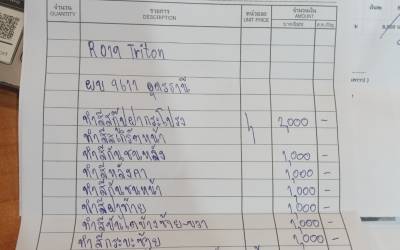 จำนวน รายการ หน่วยละ จำนวนเงิน
QUANTITY DESCRIPTION UNIT PRICE AMOUNT
R019 Triton
ผบ 9611 อุดรธานี
ทำสีสกู๊ปฝากระโปรง 2,000 -
ทำสีสเกิร์ตหน้า
ทำสีกันชนหลัง 1,000 -
ทำสีหลังคา 1,000 -
ทำสีกันชนหน้า 1,000 -
ทำสีฝาท้าย 1,000 -
ทำสีบันไดข้างซ้าย-ขวา 1,000 -
ทำสีกระบะซ้าย 1,000 -